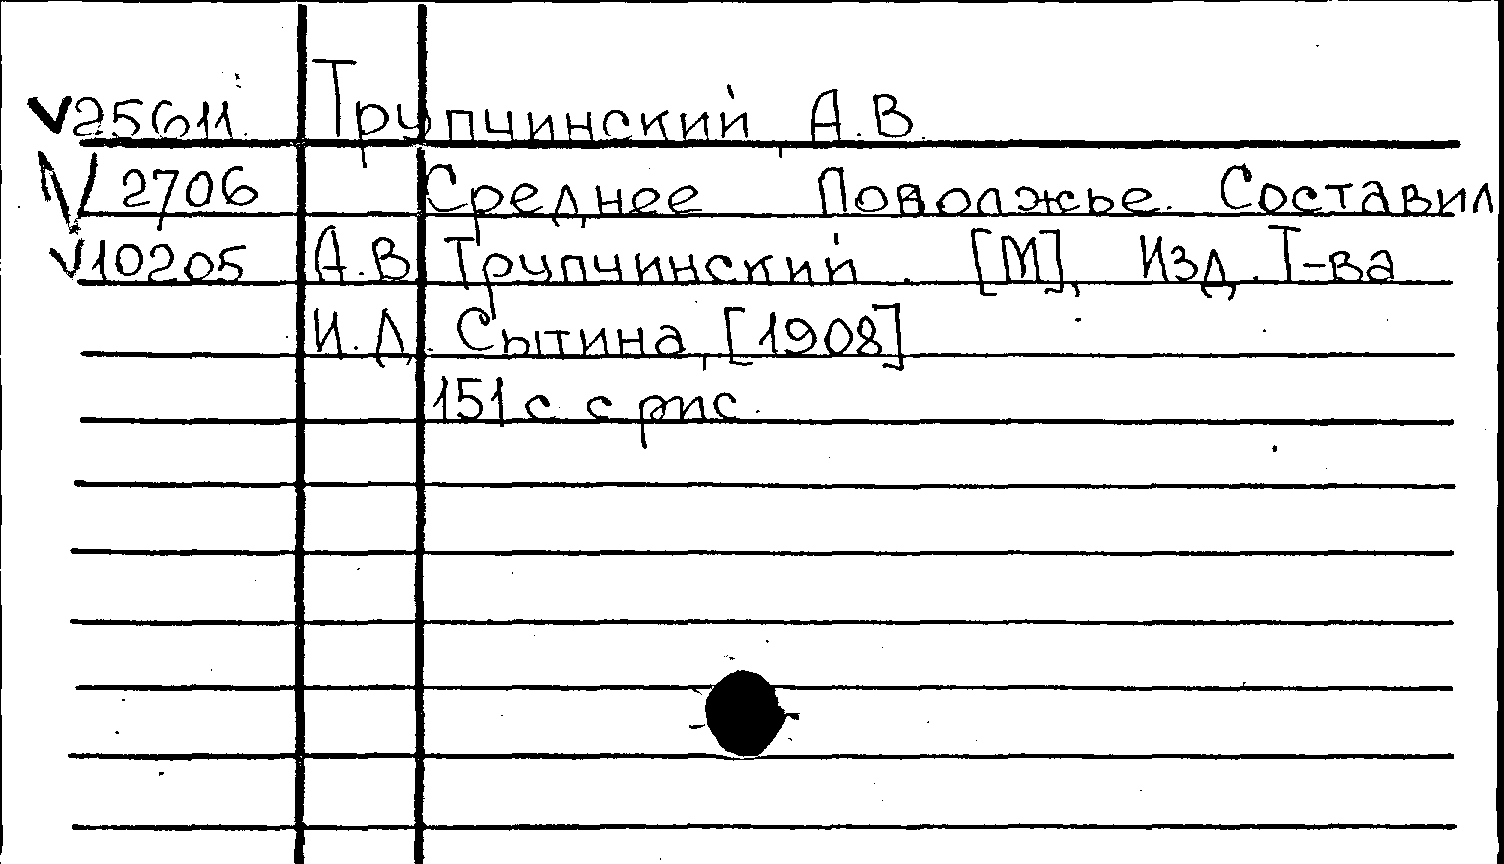 V25611 Трупчинский, А.В.
V 2706 Среднее Поволжье. Составил
V10205 А.В. Трупчинский. [М], Изд. Т-ва
И.Д. Сытина, [1908]
151 с. с рис.